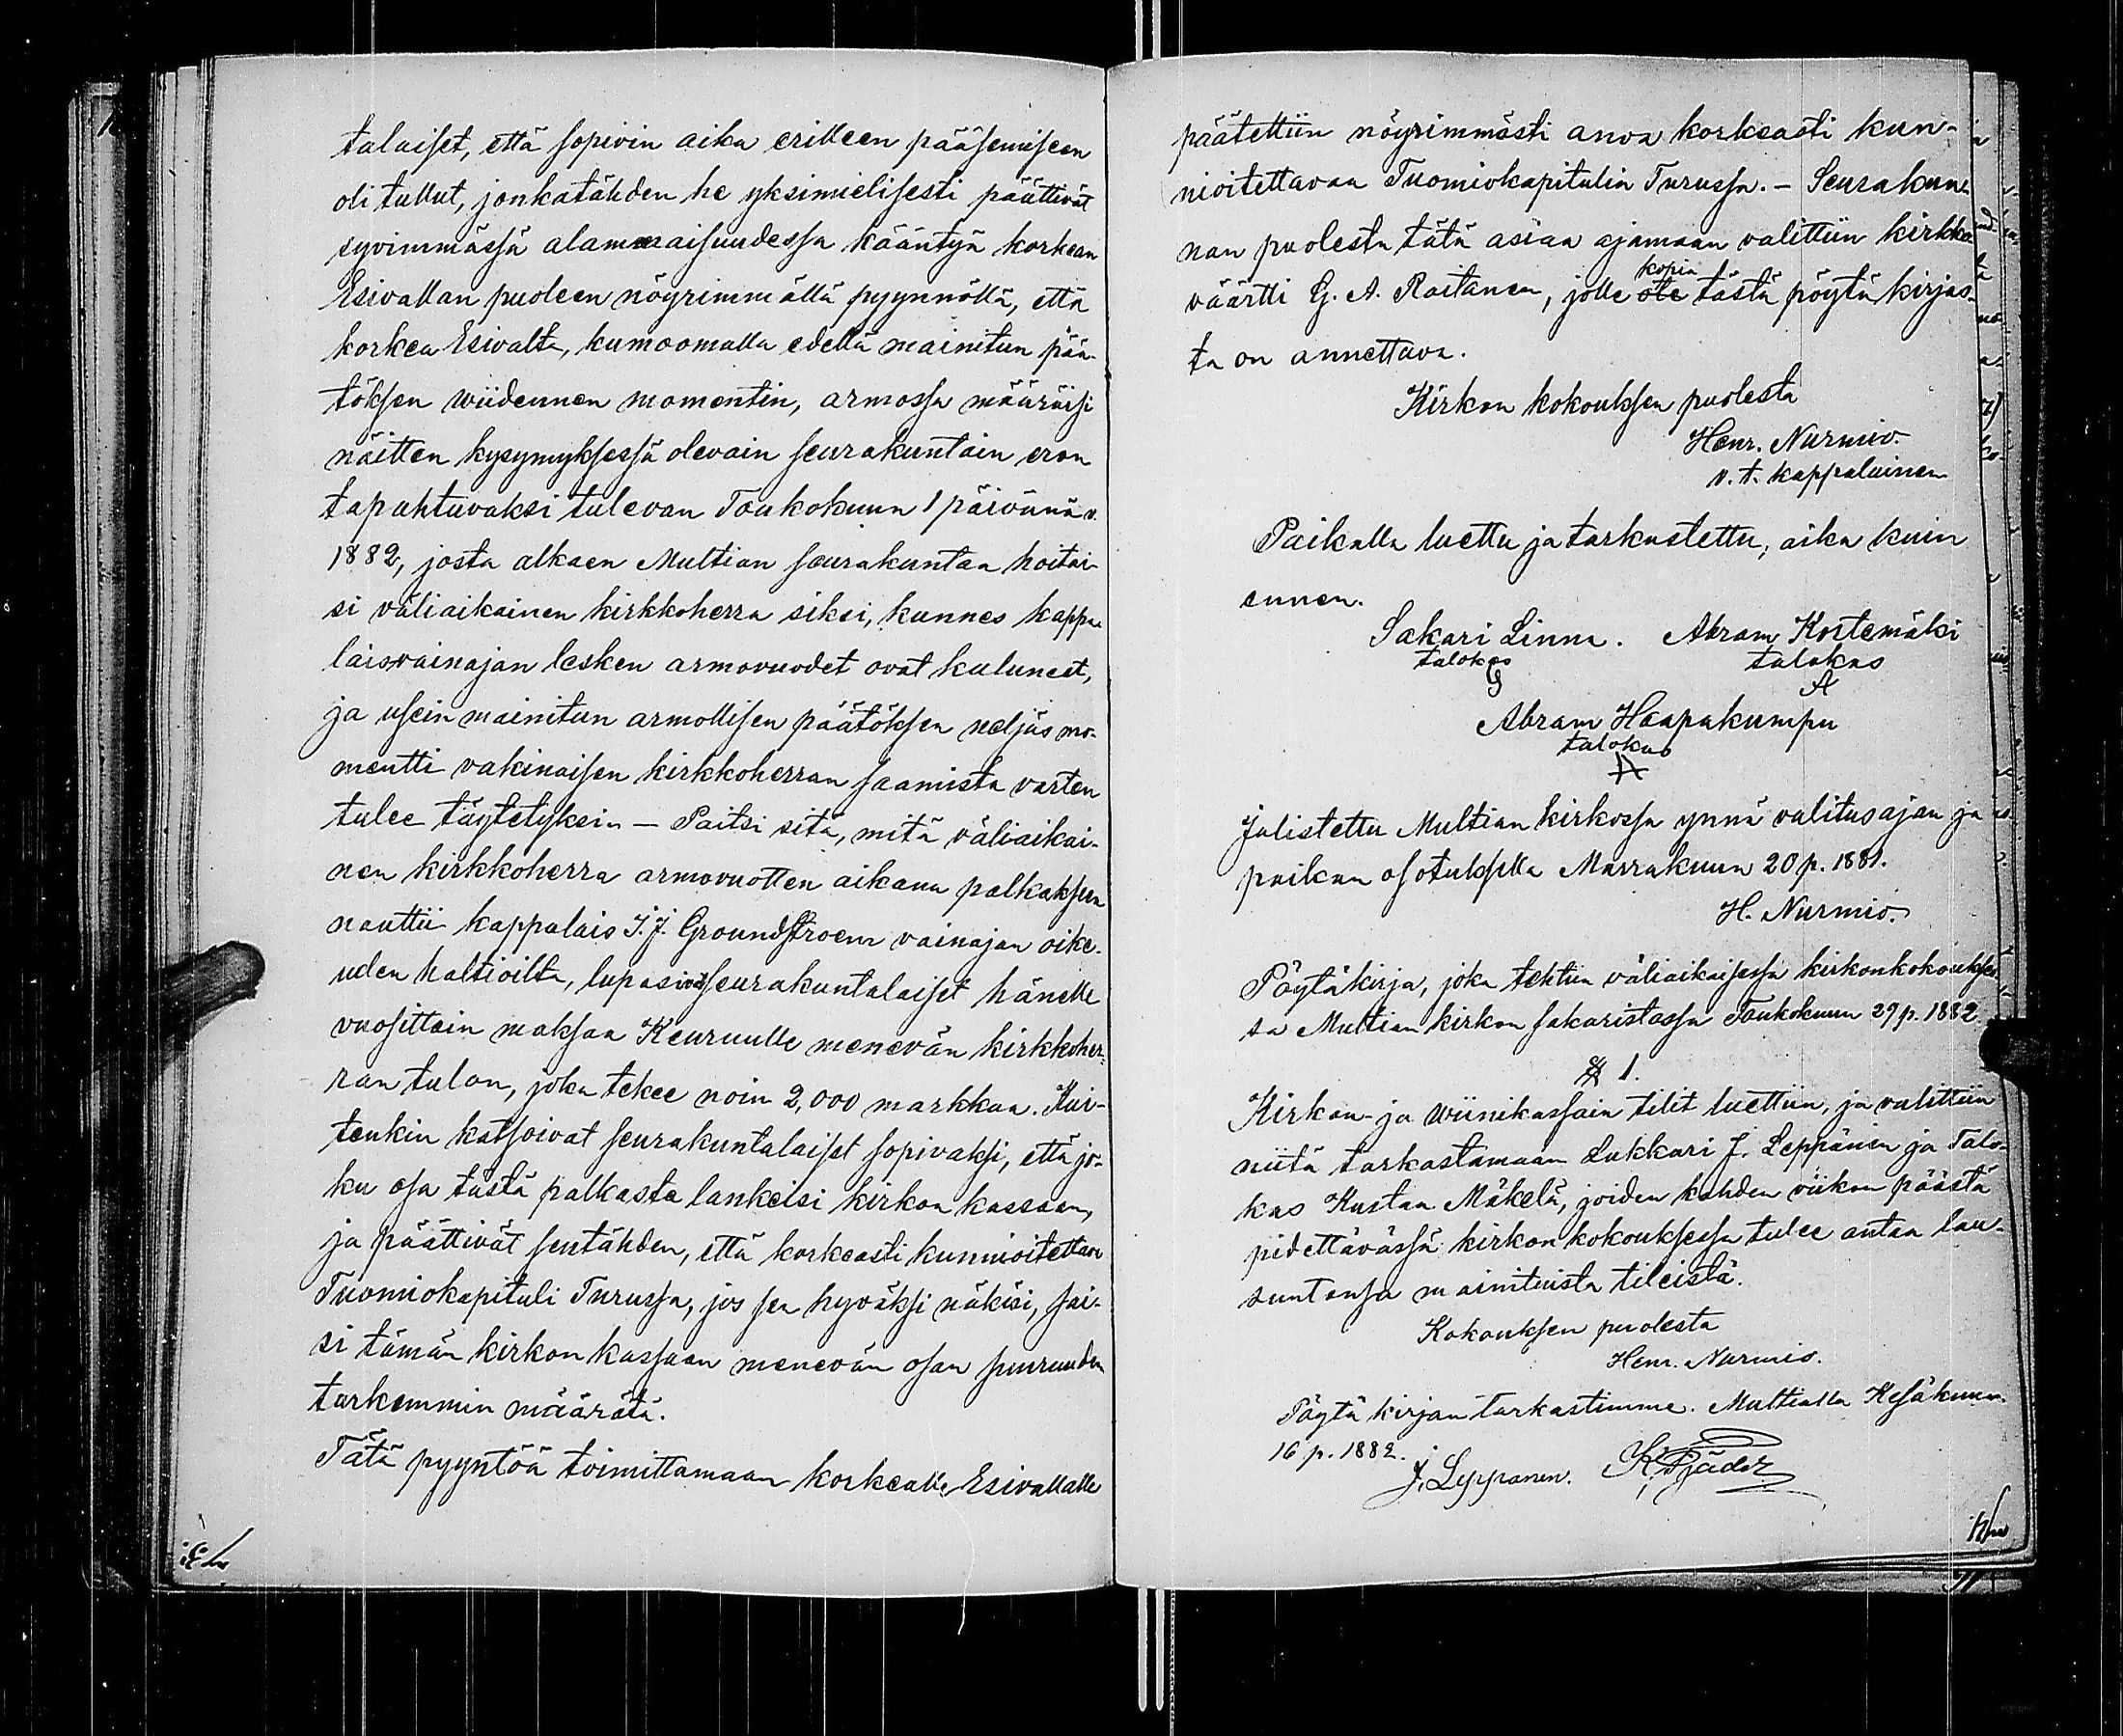 talaiset, että sopivin aika erilleen pääsemiseen
oli tullut, jonkatähden he yksimielisesti päättivät
syvimmässä alammaisuudessa kääntyä korkean
Esivallan puoleen nöyrimmällä pyynnöllä, että
korkea Esivalta, kumoomalla edellä mainitun pää-
töksen wiidennen momentin, armossa määräisi
näitten kysymyksessä olevain seurakuntain eron
tapahtuvaksi tulevan Toukokuun 1 päivänä v.
1882, josta alkaen Multian seurakuntaa hoitai-
si väliaikainen kirkkoherra siksi, kunnes kappa
laisvainajan lesken armovuodet ovat kuluneet,
ja usein mainitun armollisen päätöksen neljäs mo-
mentti vakinaisen kirkkoherran saamista varten
tulee täytetyksi. — Paitsi sitä, mitä väliaikai-
nen kirkkoherra armovuotten aikana palkaksen
nauttii kappalais J. J. Groundstroem vainajan oike-
uden haltioilta, lupasivat seurakuntalaiset hänelle
vuosittain maksaa Keuruulle menevän kirkkoher-
ran tulon, joka tekee noin 2,000 markkaa. Kui-
tenkin katsoivat seurakuntalaiset sopivaksi, että jo-
ku osa tästä palkasta lankeisi kirkon kassaan,
ja päättivät sentähden, että korkeasti kunnioitettava
Tuomiokapituli Turussa, jos sen hyväksi näkisi, sai-
si tämän kirkon kassaan menevän osan suuruuden
tarkemmin määrätä.
Tätä pyyntöä toimittamaan korkealle Esivallalle
päätettiin nöyrimmästi anoa korkeasti kun-
nioitettavaa Tuomiokapitulia Turussa. — Seurakun-
nan puolesta tätä asiaa ajamaan valittiin kirkko
väärtti G. A. Raitanen, jolle ote kopia tästä pöytäkirjas-
ta on annettava.
Kirkon kokouksen puolesta
Henr. Nurmio.
v. t. kappalainen
Paikalla luettu ja tarkastettu, aika kuin
ennen.
Sakari Linna. Abram Kortemäki
talokas talokas
A
Abram Haapakumpu
talokas
A
Julistettu Multian kirkossa ynnä valitusajan ja
paikan osotuksella Marrakuun 20 p. 1881.
H. Nurmio.
Pöytäkirja, joka tehtiin väliaikaisessa kirkonkokoukses
sa Multian kirkon sakaristassa Toukokuun 29 p. 1882.
§ 1.
Kirkon- ja wiinikassain tilit luettiin, ja valittiin
niitä tarkastamaan Lukkari J. Leppänen ja Talo-
kas Kustaa Mäkelä, joiden kahden viikon päästä
pidettävässä kirkonkokouksessa tulee antaa lau-
suntonsa mainituista tileistä.
Kokouksen puolesta
Henr. Nurmio.
Pöytäkirjan tarkastimme. Multialla Kesäkuun
16 p. 1882.
J. Leppänen.